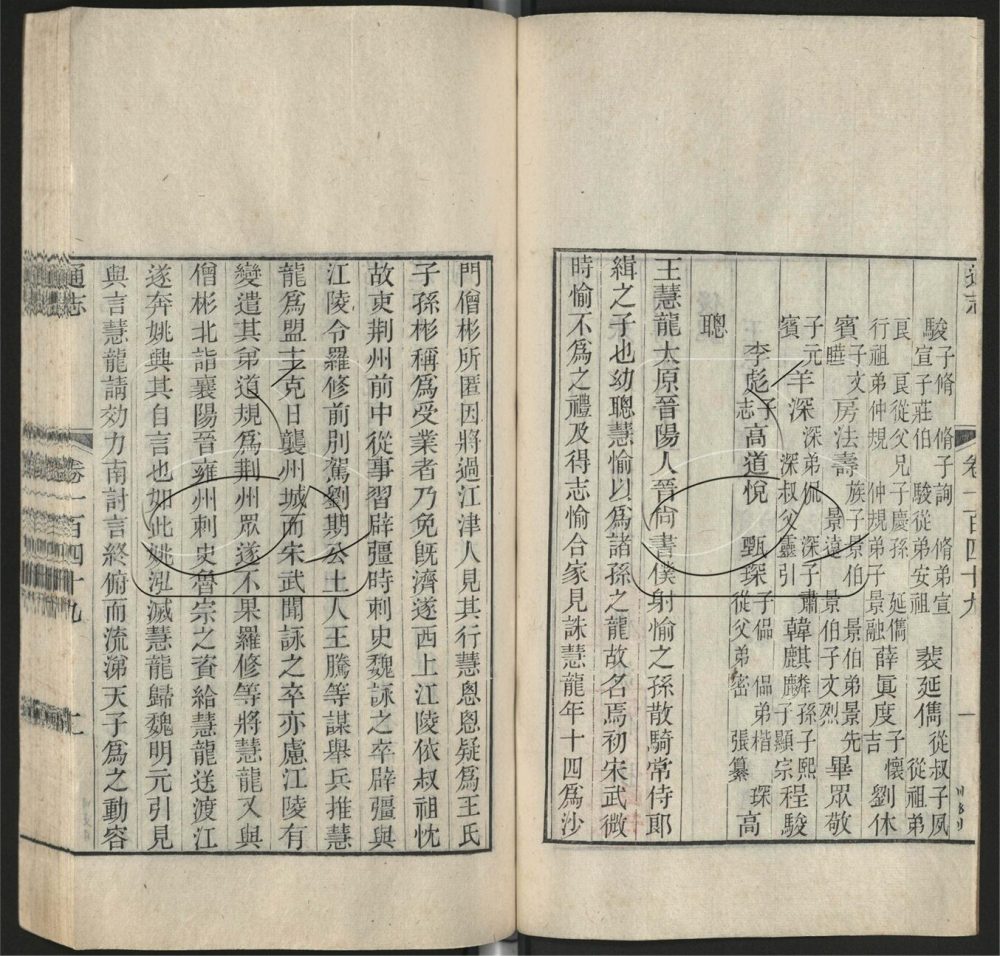 通志 卷一百四十九 一
駿子脩 脩子詢 脩弟宣 宣子莊伯 駿從弟安祖 裴延儁從叔子夙 從祖弟
艮 艮從父兄子慶孫 延儁 行祖弟仲規 仲規弟子景融 薛眞度子懷吉 劉休
賓子文曄 房法壽族子景伯 景伯弟景先 景遠 景伯子文烈 畢眾敬
子元賓 羊深深弟侃 深子肅 深叔父靈引 韓麒麟孫子熙 子顯宗 程駿
李彪子志 高道悅 甄琛子侃 侃弟楷 從父弟密 張纂 琛高
聰
王慧龍太原晉陽人晉尚書僕射愉之孫散騎常侍郎
緝之子也幼聰慧愉以爲諸孫之龍故名焉初宋武微
時愉不爲之禮及得志愉合家見誅慧龍年十四爲沙
門僧彬所匿因將過江津人見其行慧恩恩疑爲王氏
子孫彬稱爲受業者乃免旣濟遂西上江陵依叔祖忱
故吏荆州前中從事習辟彊時刺史魏詠之卒辟彊與
江陵令羅修前別駕劉期公土人王騰等謀舉兵推慧
龍爲盟主克日襲州城而宋武聞詠之卒亦慮江陵有
變遣其弟道規爲荆州眾遂不果羅修等將慧龍又與
僧彬北詣襄陽晉雍州刺史魯宗之資給慧龍送渡江
遂奔姚興其自言也如此姚泓滅慧龍歸魏明元引見
與言慧龍請効力南討言終俯而流涕天子爲之動容
通志 卷一百四十九 二